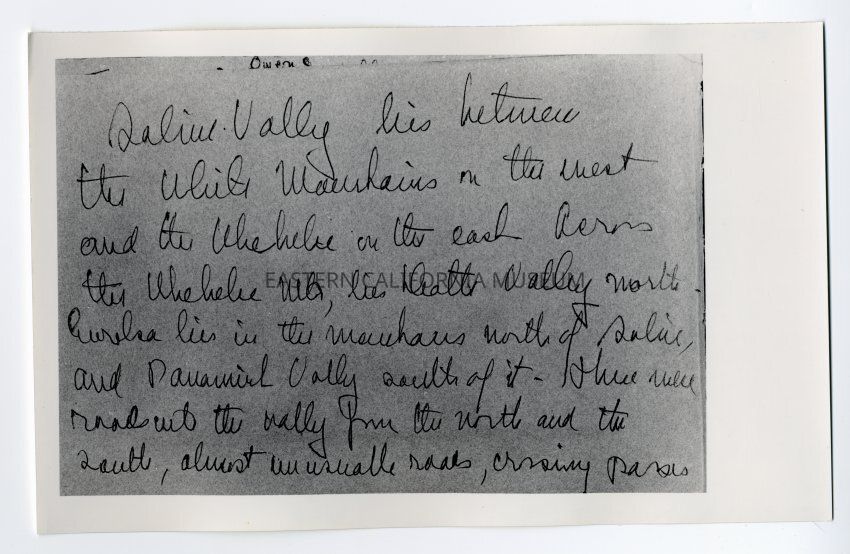 Owens
Saline Vally lies between
the White Mountains on the west
and the Ubehebe on the east Across
the Ubehebe Mts, lies Death Valley north.
EASTERN CALIFORNIA MUSEUM
Eureka lies in the mountains north of Saline,
and Panamint Vally south of it - There were
roads into the vally from the north and the
south, almost unusuable roads, crossing passes